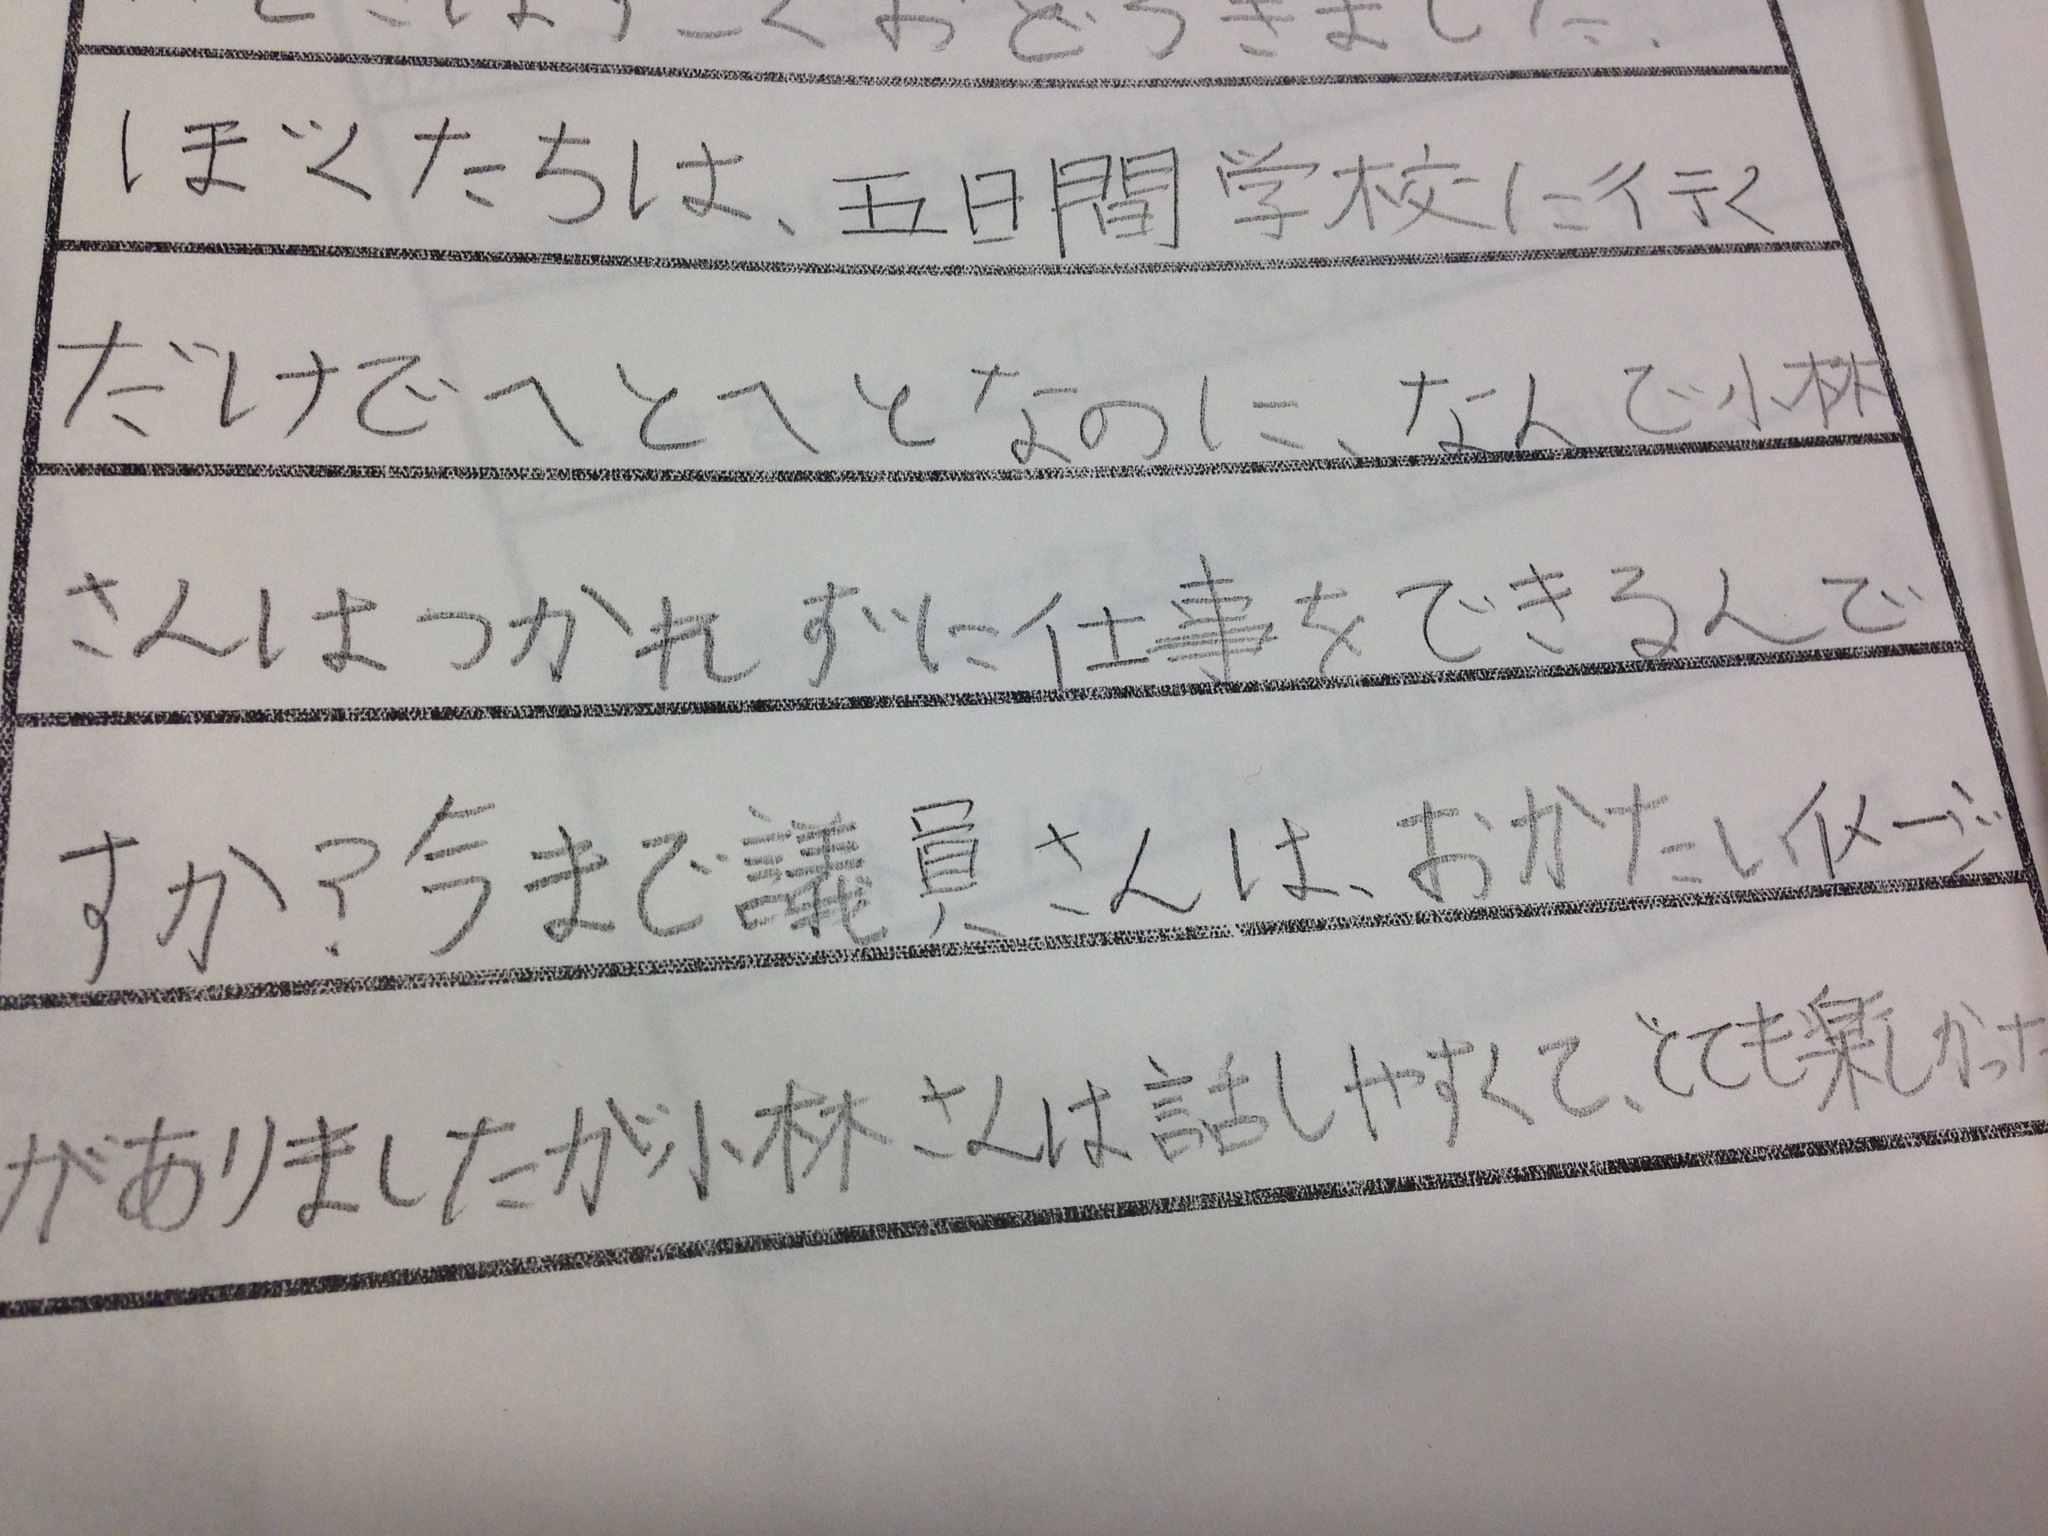 とはすごくおどろきました。
ぼくたちは、五日間学校に行く
だけでへとへとなのに、なんで小林
さんはつかれずに仕事をできるんで
すか？今まで議員さんは、おかたいイメージ
がありましたが小林さんは話しやすくて、とても楽しかった